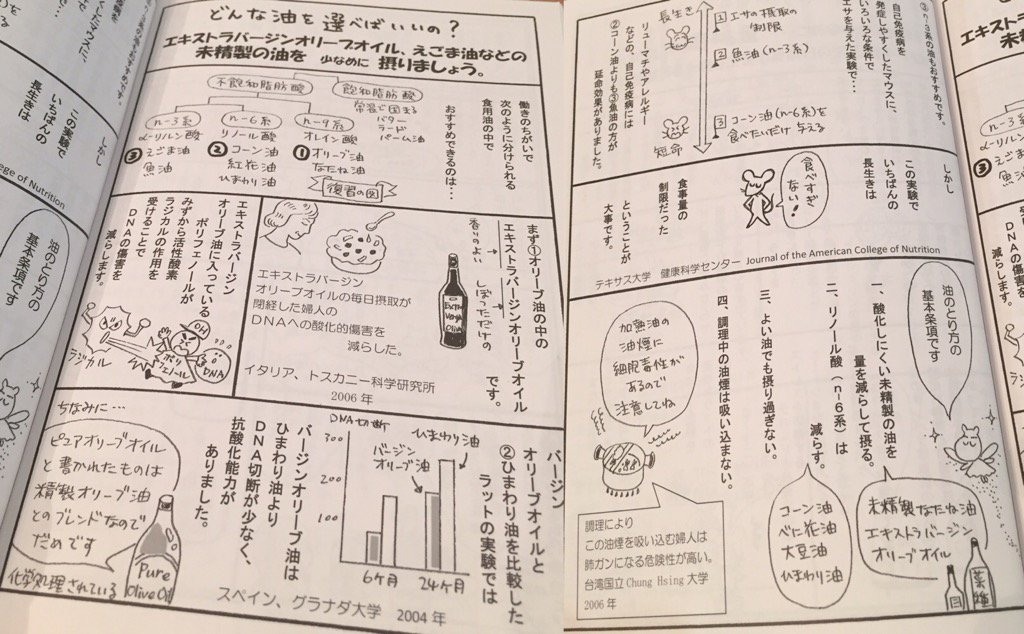 どんな油を選べばいいの？
エキストラバージンオリーブオイル、えごま油などの
未精製の油を 少なめに 摂りましょう。
働きのちがいで
次のように分けられる
食用油の中で
おすすめできるのは…
不飽和脂肪酸
飽和脂肪酸
常温で固まる
バター
ラード
パーム油
n-3系
α-リノレン酸
③えごま油
魚油
n-6系
リノール酸
②コーン油
紅花油
ひまわり油
n-9系
オレイン酸
①オリーブ油
なたね油
復習の図
まず①オリーブ油の中の
エキストラバージンオリーブオイル
です。
香りのよい
しぼっただけの
Extra
Virgin
Olive
エキストラバージン
オリーブオイルの毎日摂取が
閉経した婦人の
DNAへの酸化的傷害を
減らした。
イタリア、トスカニー科学研究所
2006年
エキストラバージン
オリーブ油に入っている
ポリフェノールが
みずから活性酸素
ラジカルの作用を
受けることで
DNAの傷害を
減らします。
ラジカル
OH
ポリフェノール
DNA
バージン
オリーブオイルと
②ひまわり油を比較した
ラットの実験では
DNA切断
300
200
100
バージン
オリーブ油
ひまわり油
6ヶ月
24ヶ月
バージンオリーブ油は
ひまわり油より
DNA切断が少なく、
抗酸化能力が
ありました。
スペイン、グラナダ大学 2004年
ちなみに…
ピュアオリーブオイル
と書かれたものは
精製オリーブ油
とのブレンドなので
だめです
化学処理されている
Pure
Olive Oil
③n-3系の油もおすすめです。
自己免疫病を
発症しやすくしたマウスに、
いろいろな条件で
エサを与えた実験で…
長生き
1 エサの摂取の
制限
2 魚油(n-3系)
3 コーン油(n-6系)を
食べたいだけ与える
短命
リューマチやアレルギー
などの、自己免疫病には
②コーン油よりも③魚油の方が
延命効果がありました。
しかし
この実験で
いちばんの
長生きは
食べすぎ
ない！
食事量の
制限だった
ということが
大事です。
テキサス大学 健康科学センター Journal of the American College of Nutrition
油のとり方の
基本条項です
一、酸化しにくい未精製の油を
量を減らして摂る。
二、リノール酸（n-6系）は
減らす。
三、よい油でも摂り過ぎない。
四、調理中の油煙は吸い込まない。
未精製なたね油
エキストラバージン
オリーブオイル
菜種
コーン油
べに花油
大豆油
ひまわり油
加熱油の
油煙に
細胞毒性が
あるので
注意してね
調理により
この油煙を吸い込む婦人は
肺ガンになる危険性が高い。
台湾国立Chung Hsing大学
2006年
しかし
この実験で
いちばんの
長生きは
College of Nutrition
油のとり方の
基本条項です
n-3系
③
DNAの傷害を
減らします。